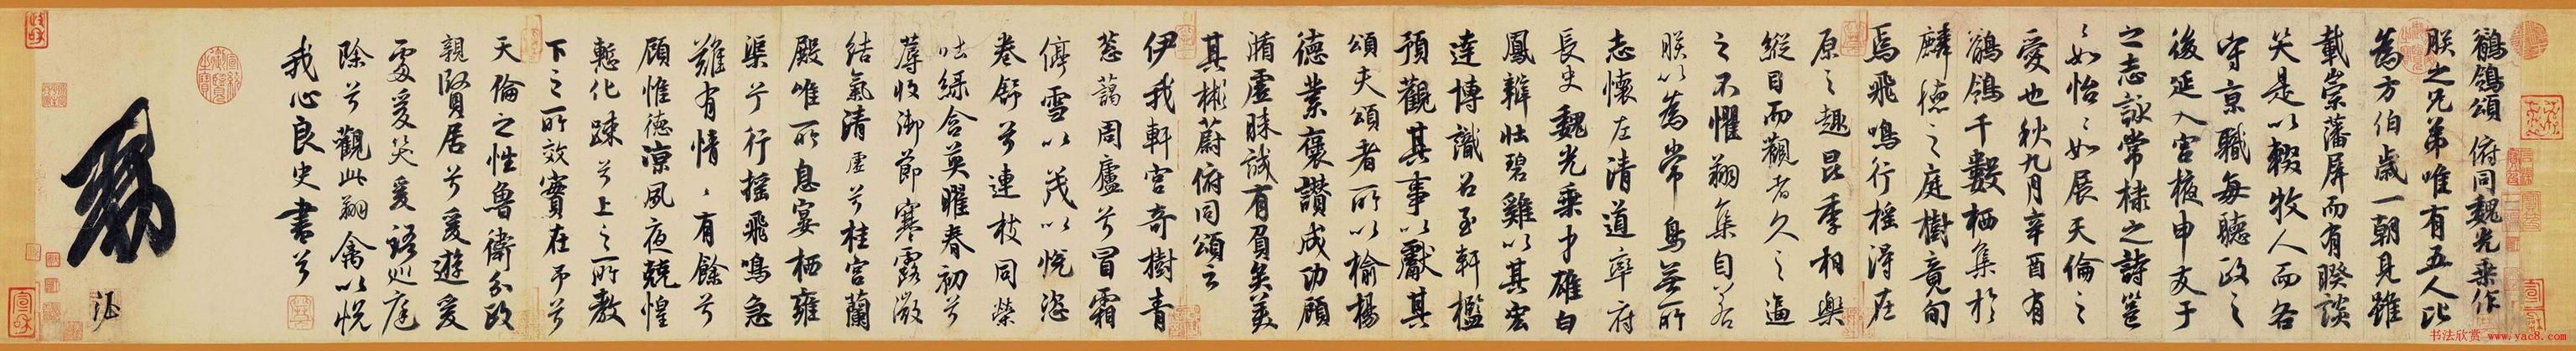 鶺鴒頌 俯同魏光乘作
朕之兄弟唯有五人比
為方伯歲一朝見雖
載崇藩屏而有睽談
笑是以輟牧人而各
守京職每聽政之
後延入宮掖申友于
之志詠常棣之詩邕
〻如怡〻如展天倫之
愛也秋九月辛酉有
鶺鴒千數栖集於
麟德之庭樹竟旬
焉飛鳴行搖得在
原之趣昆季相樂
縱目而觀者久之逼
之不懼翔集自若
朕以為常鳥無所
志懷左清道率府
長史魏光乘才雄白
鳳辯壯碧雞以其宏
達博識召至軒檻
預觀其事以獻其
頌夫頌者所以揄揚
德業褒讚成功顧
循虛昧誠有負矣美
其彬蔚俯同頌云
伊我軒宮奇樹青
蔥藹周廬兮冒霜
停雪以茂以悅恣
卷舒兮連枝同榮
吐綠含英曜春初兮
蓐收御節寒露微
結氣清虛兮桂宮蘭
殿唯所息宴栖雍
渠兮行搖飛鳴急
難有情〻有餘兮
顧惟德涼夙夜兢惶
慙化踈兮上之所教
下之所效實在予兮
天倫之性魯衛分政
親賢居兮爰遊爰
處爰笑爰語巡庭
除兮觀此翔禽以悅
我心良史書兮
書法欣赏 www.yac8.com